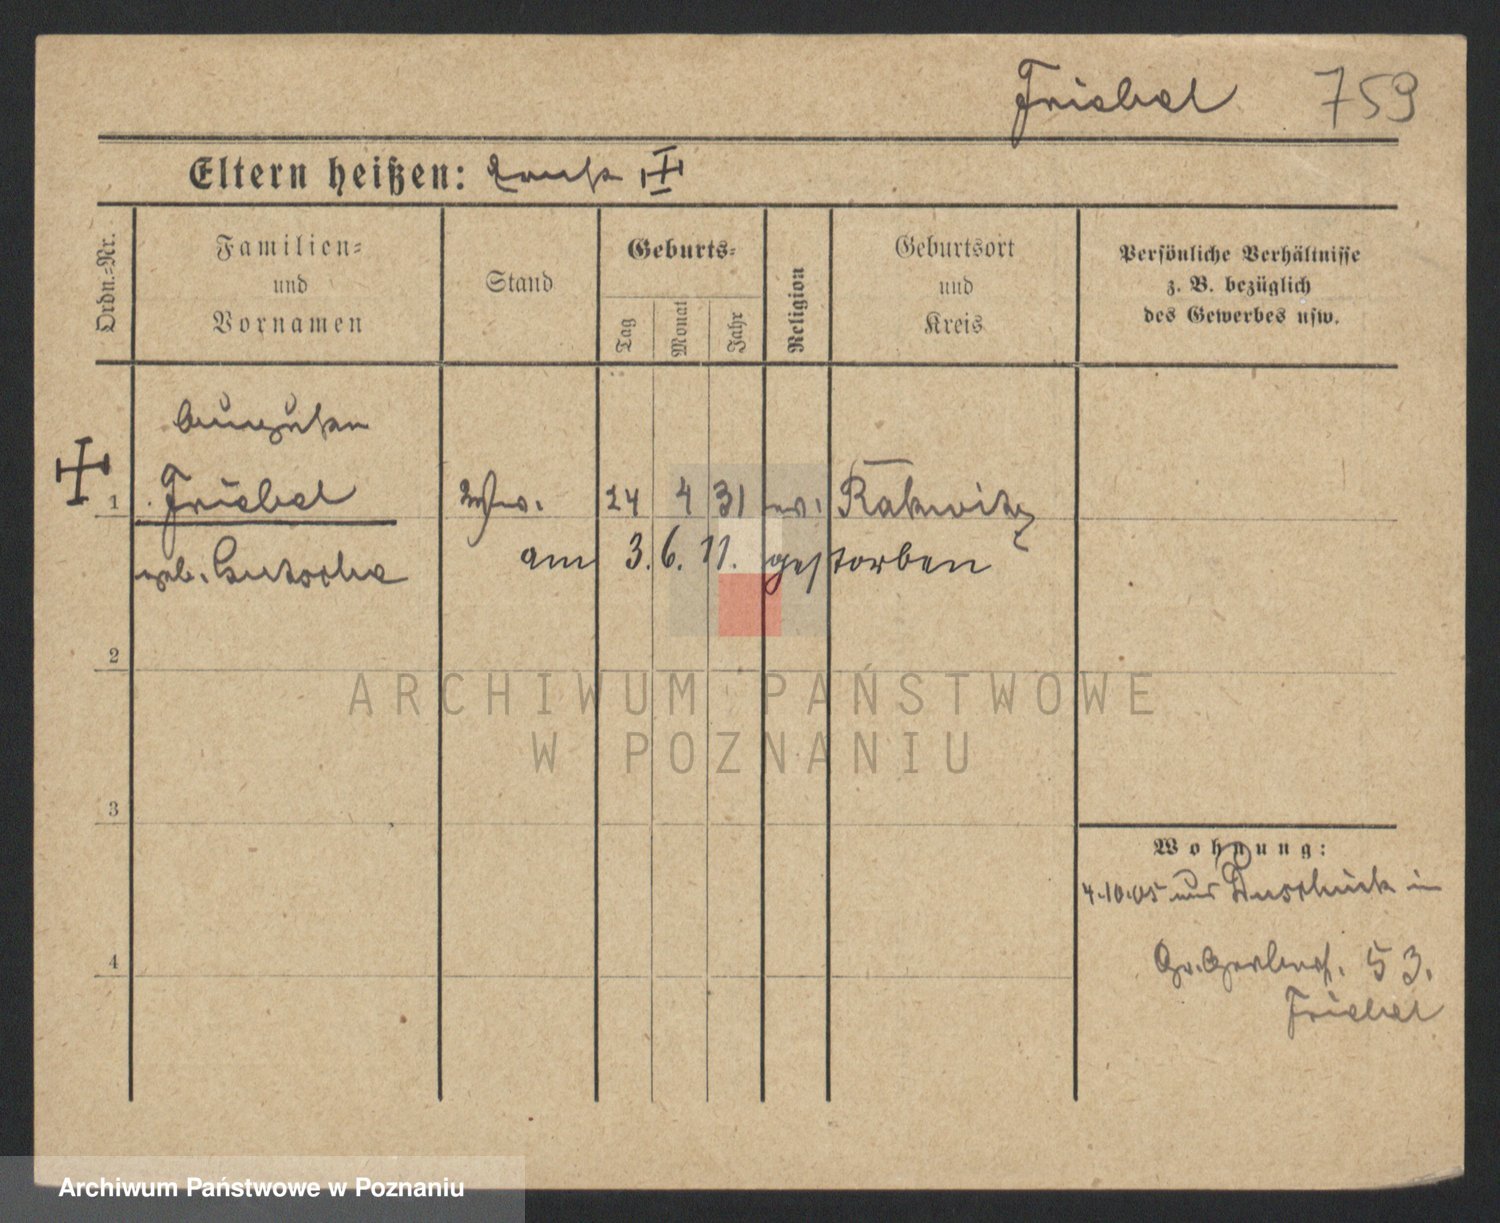 Friebel 759
Eltern heißen:
Ordn.-Nr.
Familien-
und
Vornamen
Stand
Geburts-
Tag
Monat
Jahr
Religion
Geburtsort
und
Kreis
Persönliche Verhältnisse
z. B. bezüglich
des Gewerbes usw.
1 Friebel Ww. 24 4 31 ev. Rakwitz
geb.
am 3. 6. 11. gestorben
2
3
4
Wohnung:
4.10.05 aus in
Gr. Gerberst. 53.
Friebel
ARCHIWUM PAŃSTWOWE
W POZNANIU
Archiwum Państwowe w Poznaniu